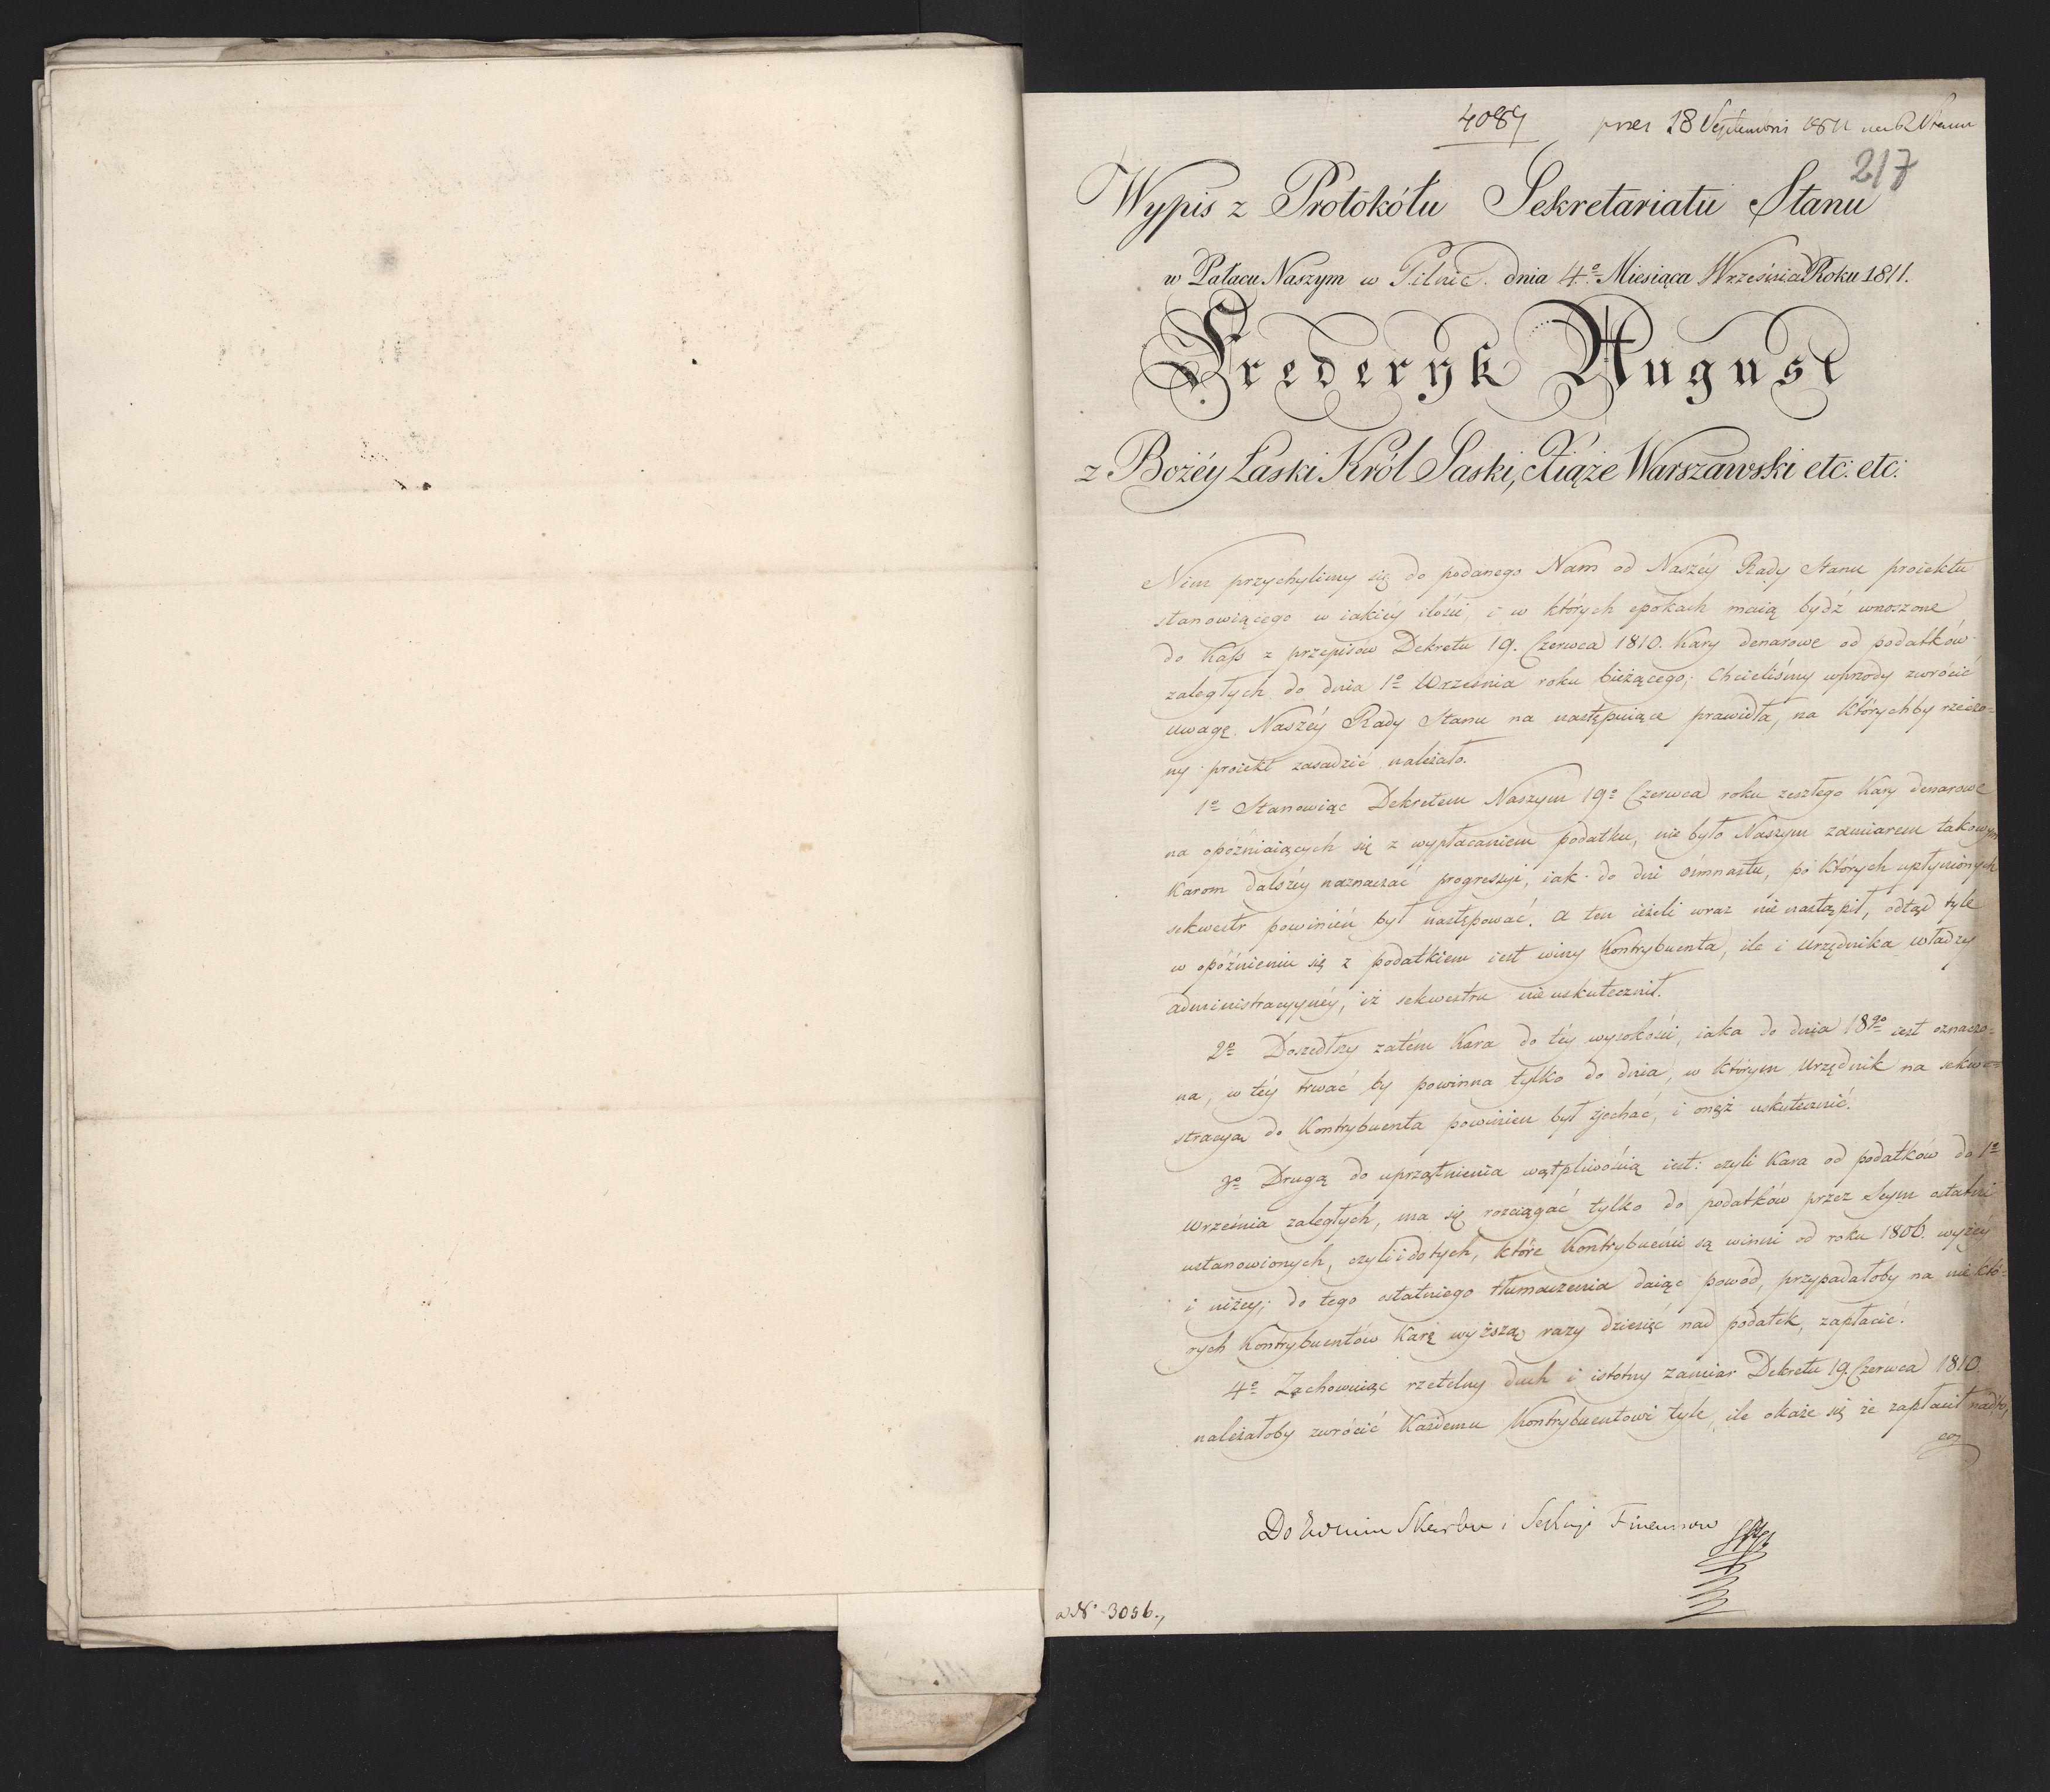 4089 18 Septembris 1811
217
Wypis z Protokółu Sekretariatu Stanu
w Pałacu Naszym w Pilnic. dnia 4º. Miesiąca Września Roku 1811.
Frederyk August
z Bożéy Łaski Król Saski, Xiąże Warszawski etc: etc:
Nim przychylimy się do podanego Nam od Naszéy Rady Stanu proiektu
stanowiącego w iakiéy ilości, i w których epokach maią bydź wnoszone
do Kass z przepisów Dekretu 19. Czerwca 1810. Kary denarowe od podatków
zaległych do dnia 1º Września roku bieżącego; Chcieliśmy wprzody zwrócić
uwagę Naszéy Rady Stanu na następuiące prawidła, na którychby rzeczo=
ny proiekt zasadzić należało.
1º Stanowiąc Dekretem Naszym 19º Czerwca roku zeszłego Kary denarowe
na opóźniaiących się z wypłacaniem podatku, nie było Naszym zamiarem takowym
Karom dalszéy naznaczać progressyi, iak do dni ośmnastu, po których upłynionych
sekwestr powinien był następować. A ten ieżeli wraz nie nastąpił, odtąd tyle
w opóźnieniu się z podatkiem iest winy Kontrybuenta, ile i Urzędnika władzy
administracyynéy, iż sekwestru nie uskutecznił.
2º Doszedłszy zatém Kara do téy wysokości, iaka do dnia 18go iest oznaczo=
na, w téy trwać by powinna tylko do dnia, w którym Urzędnik na sekwe=
stracyą do Kontrybuenta powinien był zjechać, i onęż uskutecznić.
3º Drugą do uprzątnienia wątpliwością iest: czyli Kara od podatków do 1º
Września zaległych, ma się rozciągać tylko do podatków przez Seym ostatni
ustanowionych, czyli i do tych, które Kontrybuenci są winni od roku 1806. wyżéy
i niżéy; do tego ostatniego tłumaczenia daiąc powód, przypadałoby na niektó=
rych Kontrybuentów Karę wyższą razy dziesięć nad podatek, zapłacić.
4º Zachowuiąc rzetelny duch i istotny zamiar Dekretu 19. Czerwca 1810.
należałoby zwrócić Każdemu Kontrybuentowi tyle, ile okaże się że zapłacił nad to,
co
Do Skarbu i Sekcyi Finansow
Nº 3056.